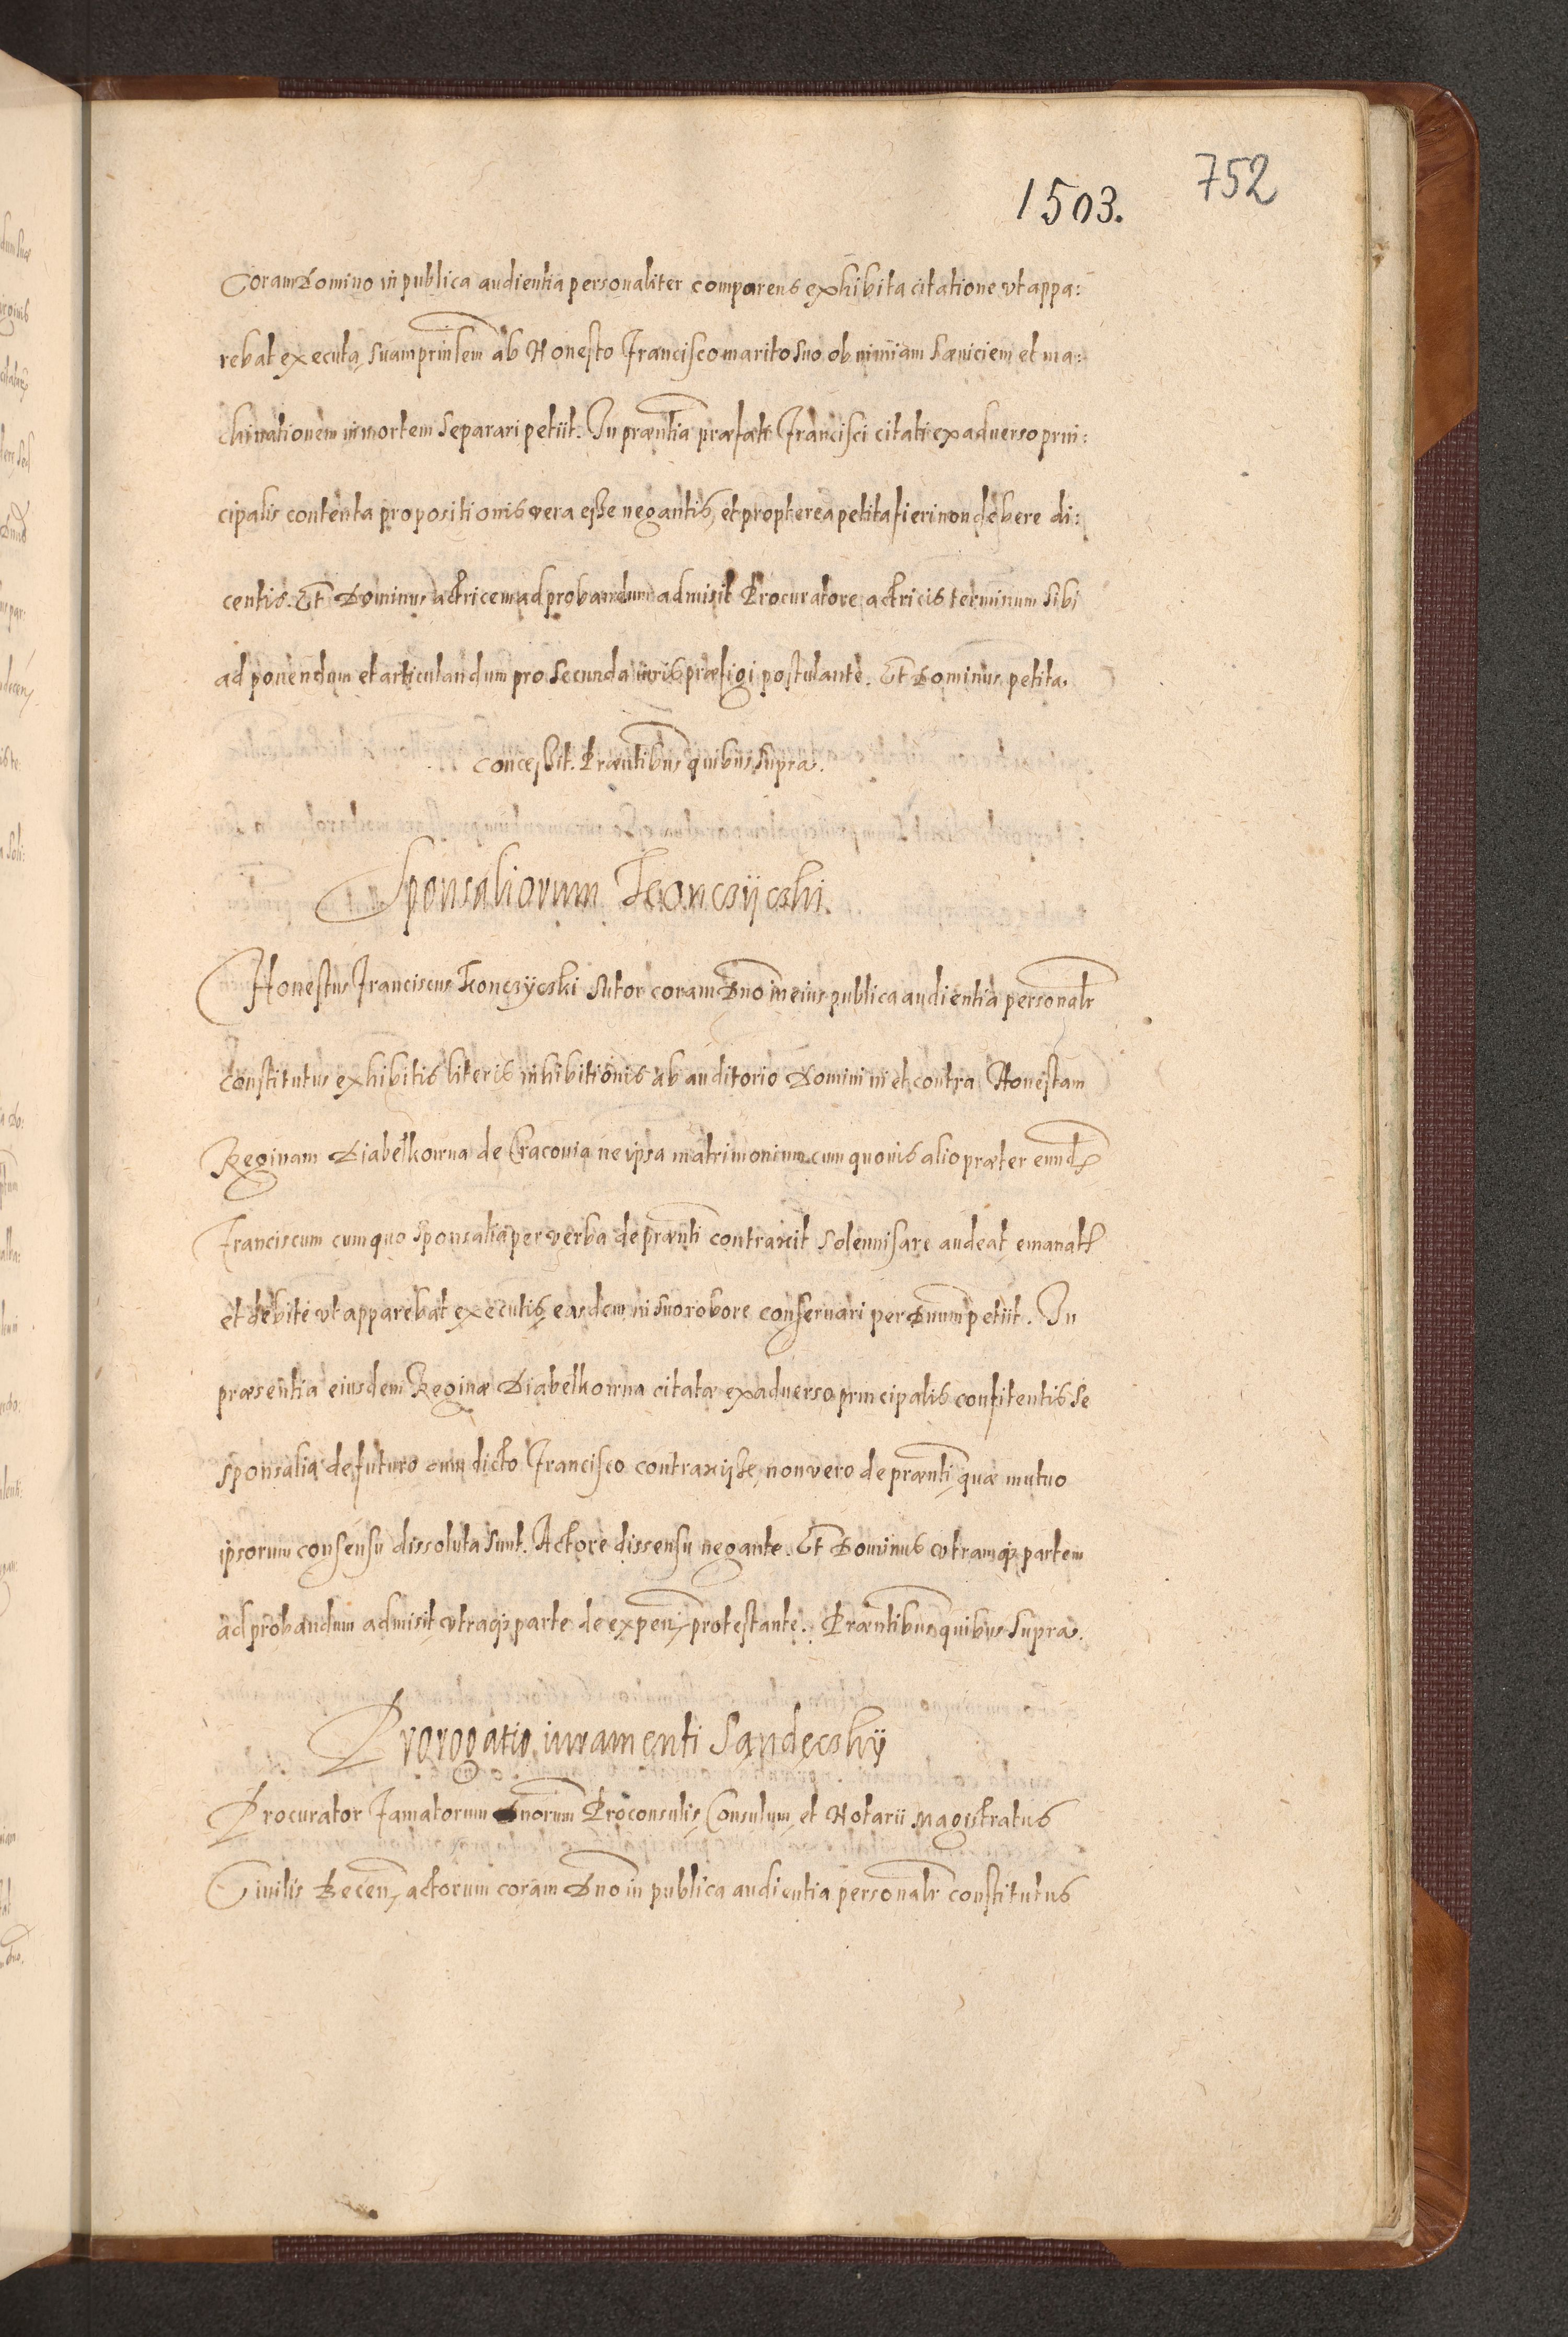 752
1503.
Coram Domino in publica audientia personaliter comparens exhibita citatione vt appa:
rebat executa, suam prinlem ab Honesto Francisco marito suo ob nimiam sæuiciem et ma:
chinationem in mortem separari petiit. In præntia præfati Francisci citati ex aduerso prin:
cipalis contenta propositionis vera esse negantis, et propterea petita fieri non debere di:
centis. Et Dominus actricem ad probandum admisit Procuratore actricis terminum sibi
ad ponendum et articulandum pro secunda iuris præfigi postulante. Et Dominus petita
concessit. Præntibus quibus supra.
Sponsaliorum Konczÿczki.
Honestus Franciscus Konczÿczki Sutor coram Dno in eius publica audientia personalr
constitutus exhibitis literis inhibitionis ab auditorio Domini in et contra Honestam
Reginam Diabelkowna de Cracouia ne ipsa matrimonium cum quouis alio præter eund
Franciscum cum quo sponsalia per verba de prænti contraxit solennisare audeat, emanat
et debite vt apparebat executis, easdem in suo robore conseruari per Dnum petiit. In
præsentia eiusdem Reginæ Diabelkowna citatæ ex aduerso principalis confitentis se
sponsalia de futuro cum dicto Francisco contraxisse, non vero de prænti, quæ mutuo
ipsorum consensu dissoluta sunt. Actore dissensu negante. Et Dominus vtramq; partem
ad probandum admisit, vtraq; parte de expen, protestante. Præntibus quibus supra.
Prorogatio iuramenti Sandeczkÿ
Procurator Famatorum Dnorum Proconsulis, Consulum, et Notarii Magistratus
Ciuilis Becen, actorum coram Dno in publica audientia personalr constitutus